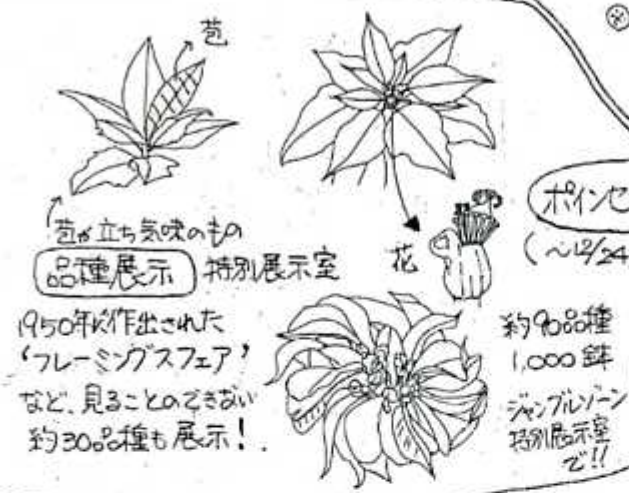 ※
苞
苞が立ち気味のもの
花
品種展示 特別展示室
1950年代作出された
‘フレーミングスフェア’
など、見ることのできない
約30品種も展示!
ポインセ
(～12/24
約90品種
1,000鉢
ジャングルゾーン
特別展示室
で!!